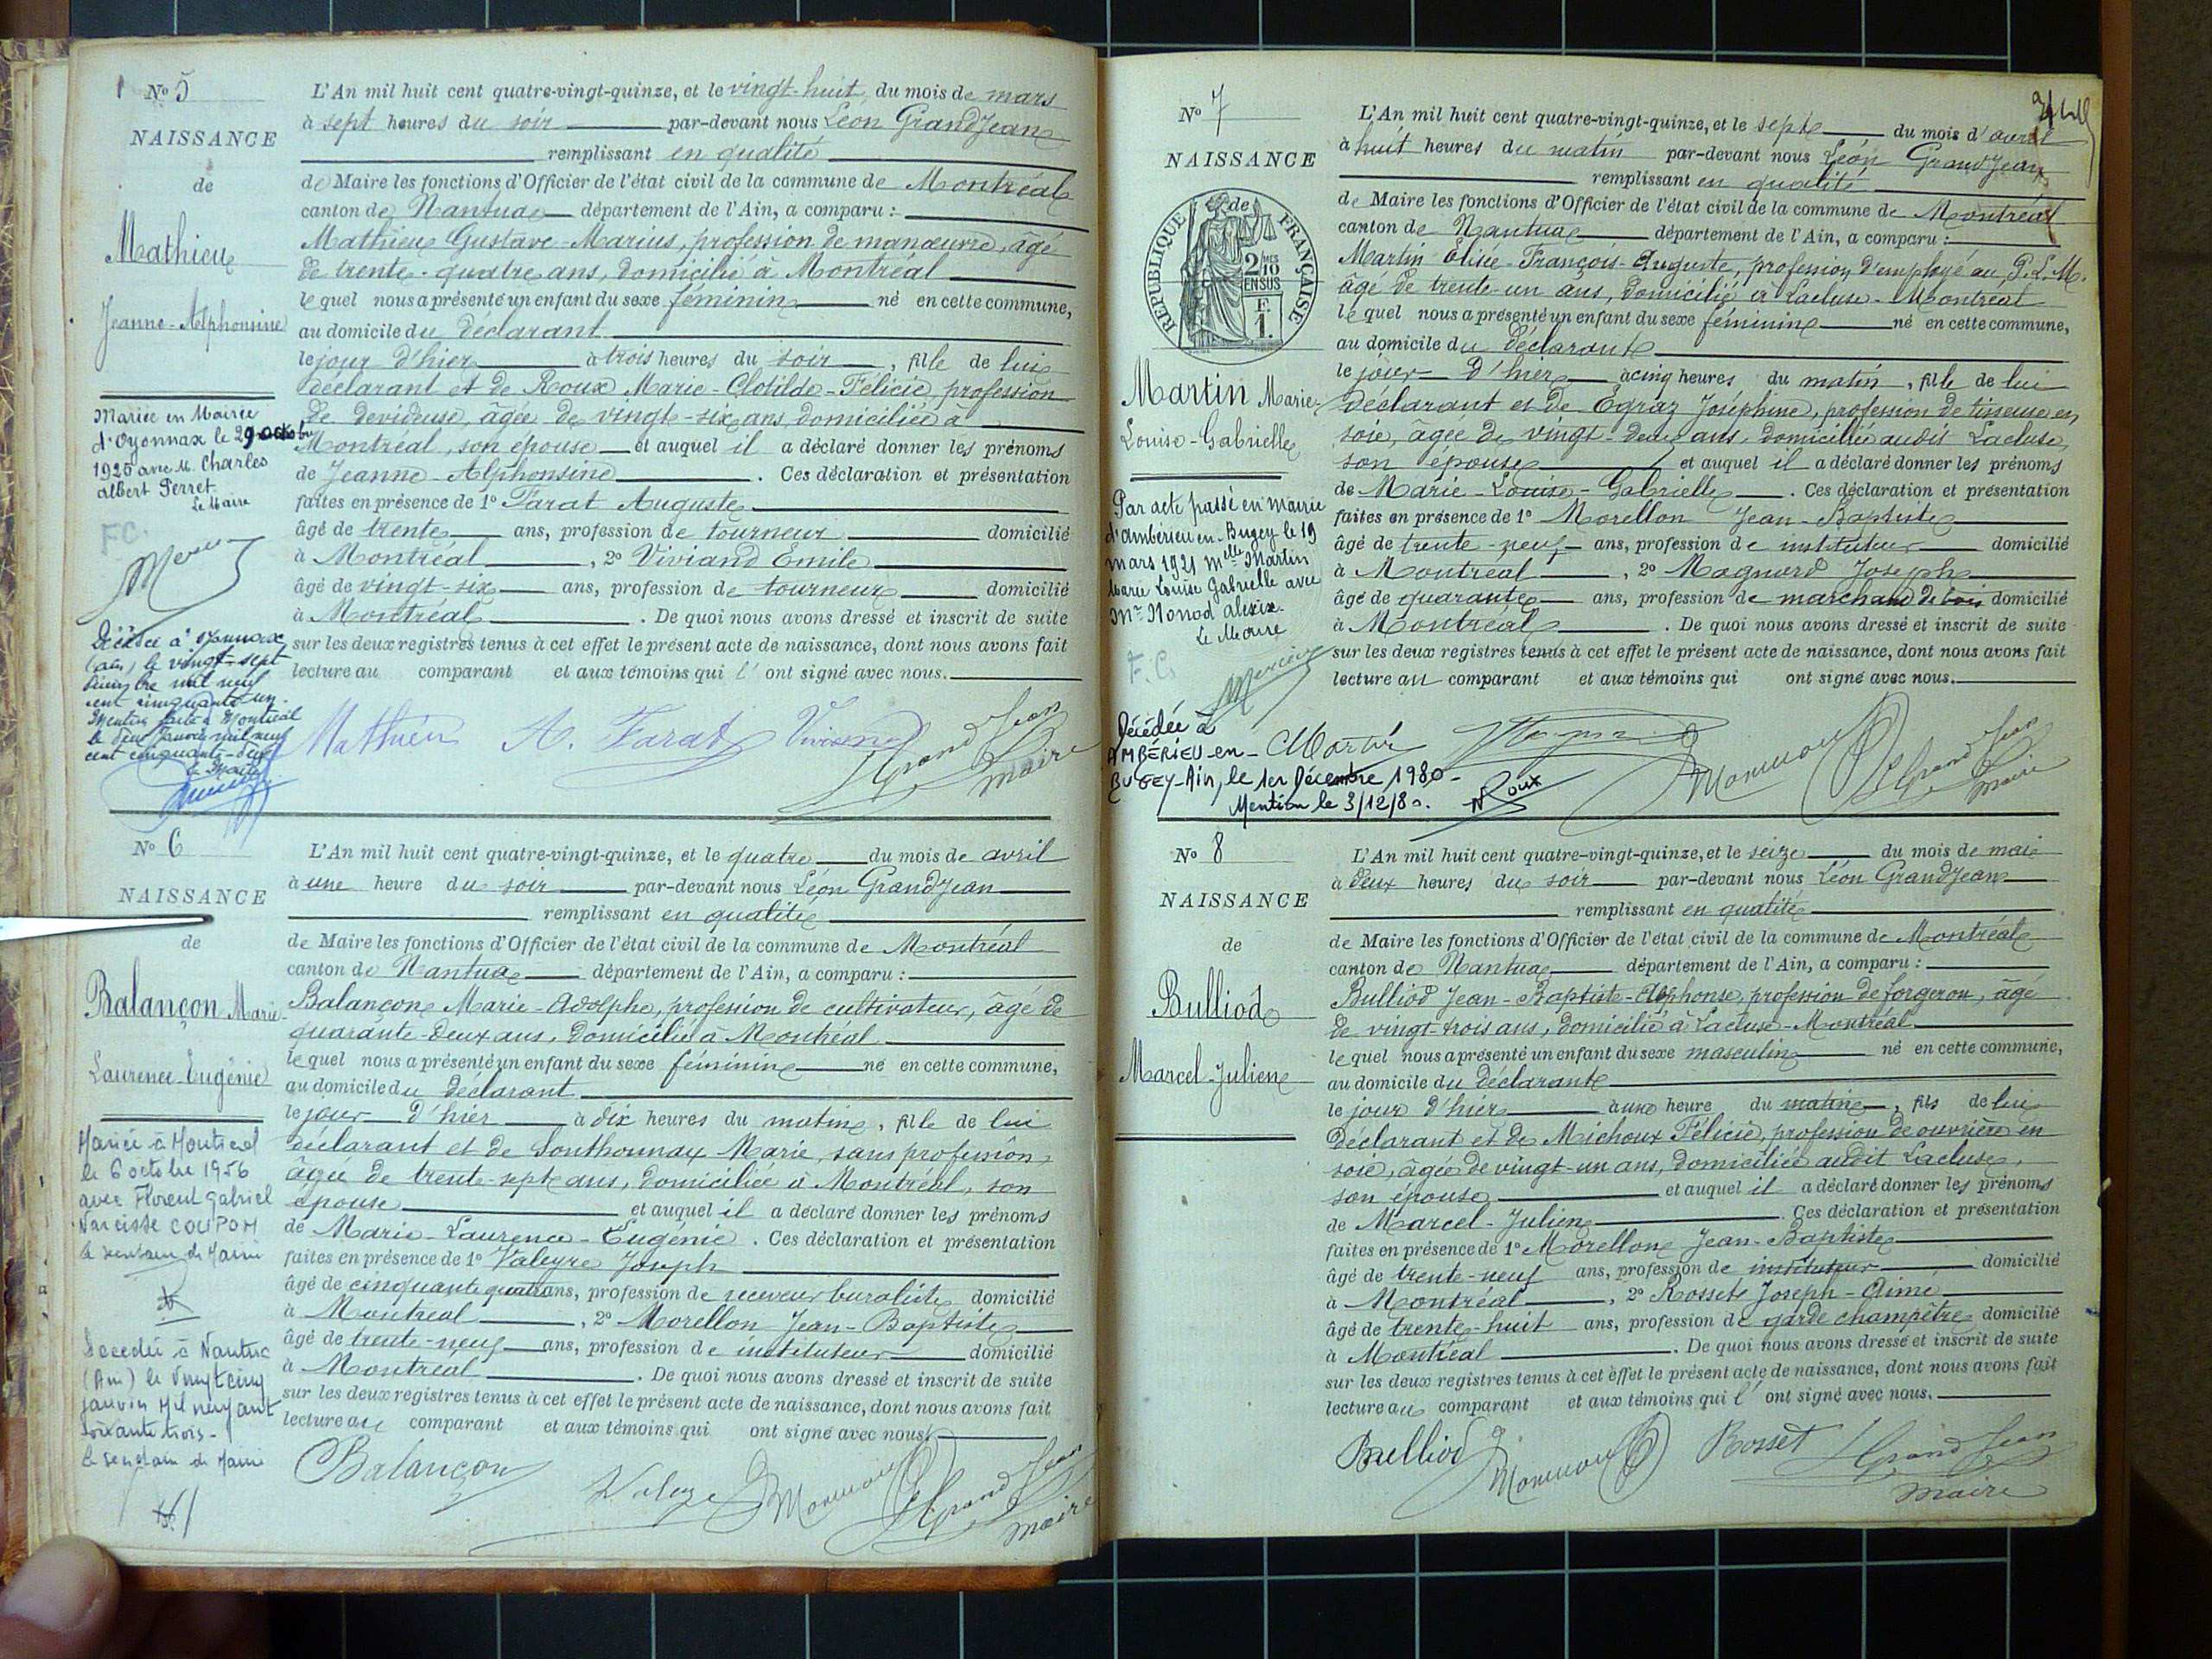 Nº 5
NAISSANCE
de
Mathieu
Jeanne-Alphonsine
Mariée en Mairie
d'Oyonnax le 29 octobre
1925 avec M. Charles
Albert Perret
Le Maire
F.C.
Décédée à Oyonnax
(Ain) le vingt-sept
mil neuf
cent cinquante-un.
Mention faite à Montréal
le deux Janvier mil neuf
cent cinquante-deux
Le Maire
L'An mil huit cent quatre-vingt-quinze, et le vingt-huit du mois de mars
à sept heures du soir par-devant nous Léon Grandjean
remplissant en qualité
de Maire les fonctions d'Officier de l'état civil de la commune de Montréal
canton de Nantua département de l'Ain, a comparu :
Mathieu Gustave-Marius, profession de manœuvre, âgé
de trente-quatre ans, domicilié à Montréal
lequel nous a présenté un enfant du sexe féminin né en cette commune,
au domicile du déclarant
le jour d'hier à trois heures du soir, fille de lui
déclarant et de Roux Marie-Clotilde-Félicie, profession
de devideuse, âgée de vingt-six ans, domiciliée à
Montréal, son épouse et auquel il a déclaré donner les prénoms
de Jeanne-Alphonsine. Ces déclaration et présentation
faites en présence de 1º Farat Auguste
âgé de trente ans, profession de tourneur domicilié
à Montréal, 2º Viviand Emile
âgé de vingt-six ans, profession de tourneur domicilié
à Montréal. De quoi nous avons dressé et inscrit de suite
sur les deux registres tenus à cet effet le présent acte de naissance, dont nous avons fait
lecture au comparant et aux témoins qui l'ont signé avec nous.
Mathieu A. Farat Viviand Grandjean
maire
Nº 6
NAISSANCE
de
Balançon Marie-
Laurence-Eugénie
Mariée à Montréal
le 6 octobre 1956
avec Florent Gabriel
Narcisse COUPON
le secrétaire de Mairie
Décédée à Nantua
(Ain) le Vingt cinq
janvier Mil neuf cent
soixante trois -
le secrétaire de Mairie
L'An mil huit cent quatre-vingt-quinze, et le quatre du mois de avril
à une heure du soir par-devant nous Léon Grandjean
remplissant en qualité
de Maire les fonctions d'Officier de l'état civil de la commune de Montréal
canton de Nantua département de l'Ain, a comparu :
Balançon Marie-Adolphe, profession de cultivateur, âgé de
quarante-deux ans, domicilié à Montréal
lequel nous a présenté un enfant du sexe féminin né en cette commune,
au domicile du déclarant
le jour d'hier à dix heures du matin, fille de lui
déclarant et de Sonthonnax Marie, sans profession,
âgée de trente-sept ans, domiciliée à Montréal, son
épouse et auquel il a déclaré donner les prénoms
de Marie-Laurence-Eugénie. Ces déclaration et présentation
faites en présence de 1º Valeyre Joseph
âgé de cinquante quatre ans, profession de receveur buraliste domicilié
à Montréal, 2º Morellon Jean-Baptiste
âgé de trente-neuf ans, profession de instituteur domicilié
à Montréal. De quoi nous avons dressé et inscrit de suite
sur les deux registres tenus à cet effet le présent acte de naissance, dont nous avons fait
lecture au comparant et aux témoins qui ont signé avec nous.
Balançon Valeyre Morellon Grandjean
maire
Nº 7
NAISSANCE
de
RÉPUBLIQUE FRANÇAISE
2/10 MES
EN SUS
F.
1.
Martin Marie-
Louise-Gabrielle
Par acte passé en mairie
d'Ambérieu-en-Bugey le 19
mars 1921 Melle Martin
Marie Louise Gabrielle avec
Mr Monod Alexix.
Le Maire
F.C.
Décédée à
AMBÉRIEU-en-
BUGEY-Ain, le 1er Décembre 1980-
Mention le 3/12/80. Roux
L'An mil huit cent quatre-vingt-quinze, et le sept du mois d'avril
à huit heures du matin par-devant nous Léon Grandjean
remplissant en qualité
de Maire les fonctions d'Officier de l'état civil de la commune de Montréal
canton de Nantua département de l'Ain, a comparu :
Martin Elisée-François-Auguste, profession d'employé au P.L.M.
âgé de trente-un ans, domicilié à Lacluse-Montréal
lequel nous a présenté un enfant du sexe féminin né en cette commune,
au domicile du déclarant
le jour d'hier à cinq heures du matin, fille de lui
déclarant et de Egraz Joséphine, profession de tisseuse en
soie, âgée de vingt-deux ans, domiciliée audit Lacluse,
son épouse et auquel il a déclaré donner les prénoms
de Marie-Louise-Gabrielle. Ces déclaration et présentation
faites en présence de 1º Morellon Jean-Baptiste
âgé de trente-neuf ans, profession de instituteur domicilié
à Montréal, 2º Magnard Joseph
âgé de quarante ans, profession de marchand de bois domicilié
à Montréal. De quoi nous avons dressé et inscrit de suite
sur les deux registres tenus à cet effet le présent acte de naissance, dont nous avons fait
lecture au comparant et aux témoins qui ont signé avec nous.
Martin Morellon Grandjean
maire
Nº 8
NAISSANCE
de
Bulliod
Marcel-Julien
L'An mil huit cent quatre-vingt-quinze, et le seize du mois de mai
à deux heures du soir par-devant nous Léon Grandjean
remplissant en qualité
de Maire les fonctions d'Officier de l'état civil de la commune de Montréal
canton de Nantua département de l'Ain, a comparu :
Bulliod Jean-Baptiste-Alphonse, profession de forgeron, âgé
de vingt-trois ans, domicilié à Lacluse-Montréal
lequel nous a présenté un enfant du sexe masculin né en cette commune,
au domicile du déclarant
le jour d'hier à une heure du matin, fils de lui
déclarant et de Michoux Félicie, profession de ouvrière en
soie, âgée de vingt-un ans, domiciliée audit Lacluse,
son épouse et auquel il a déclaré donner les prénoms
de Marcel-Julien. Ces déclaration et présentation
faites en présence de 1º Morellon Jean-Baptiste
âgé de trente-neuf ans, profession de instituteur domicilié
à Montréal, 2º Rosset Joseph-Aimé
âgé de trente-huit ans, profession de garde champêtre domicilié
à Montréal. De quoi nous avons dressé et inscrit de suite
sur les deux registres tenus à cet effet le présent acte de naissance, dont nous avons fait
lecture au comparant et aux témoins qui l'ont signé avec nous.
Bulliod Morellon Rosset Grandjean
maire